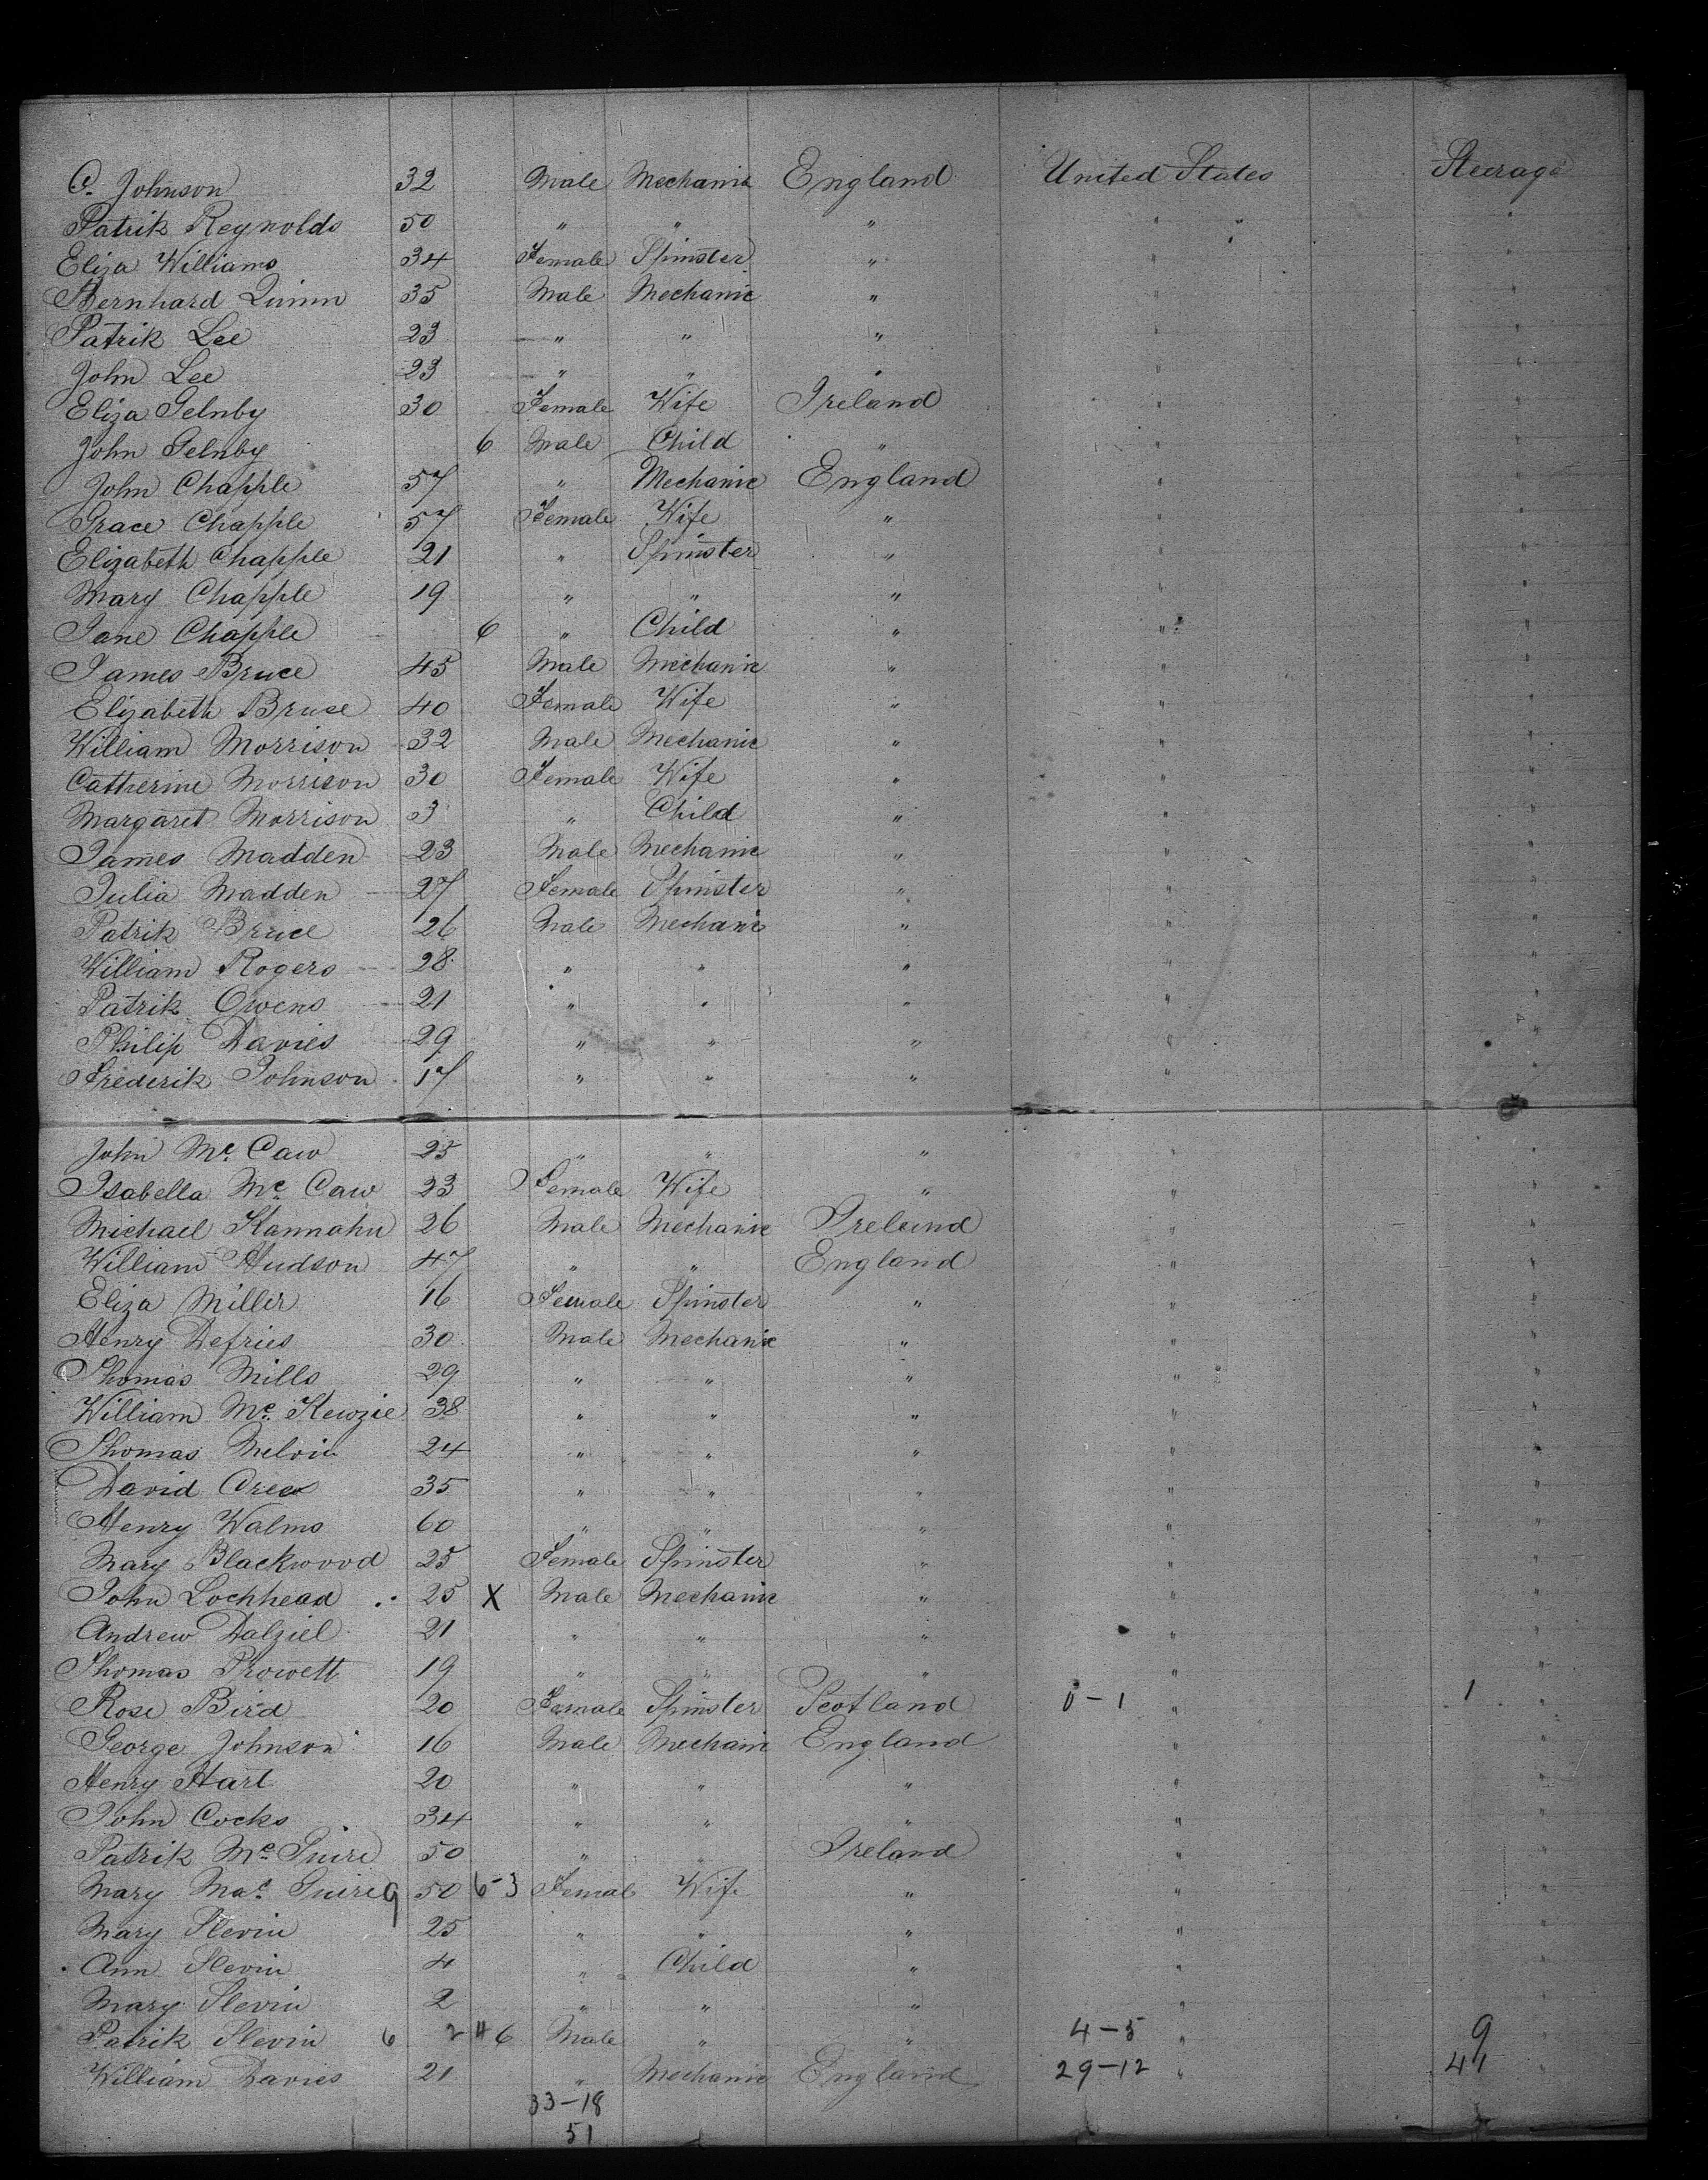 C. Johnson 32 Male Mechanic England United States Steerage
Patrik Reynolds 50 " " " " " "
Eliza Williams 34 Female Spinster " " "
Bernhard Quinn 35 Male Mechanic " " "
Patrik Lee 23 " " " " "
John Lee 23 " " " " "
Eliza Gelnby 30 Female Wife Ireland " "
John Gelnby 6 Male Child " " "
John Chapple 57 " Mechanic England " "
Grace Chapple 57 Female Wife " " "
Elizabeth Chapple 21 " Spinster " " "
Mary Chapple 19 " " " " "
Jane Chapple 6 " Child " " "
James Bruce 45 Male Mechanic " " "
Elizabeth Bruce 40 Female Wife " " "
William Morrison 32 Male Mechanic " " "
Catherine Morrison 30 Female Wife " " "
Margaret Morrison 3 " Child " " "
James Madden 23 Male Mechanic " " "
Julia Madden 27 Female Spinster " " "
Patrik Bruce 26 Male Mechanic " " "
William Rogers 28 " " " " "
Patrik Owens 21 " " " " "
Philip Davies 29 " " " " "
Frederik Johnson 17 " " " " "
John Mc. Caw 25 " " " " "
Isabella Mc. Caw 23 Female Wife " " "
Michael Kannahn 26 Male Mechanic Ireland " "
William Hudson 47 " " England " "
Eliza Miller 16 Female Spinster " " "
Henry Defries 30 Male Mechanic " " "
Thomas Mills 29 " " " " "
William Mc. Kewzie 38 " " " " "
Thomas Melvin 24 " " " " "
David 35 " " " " "
Henry Walms 60 " " " " "
Mary Blackwood 25 Female Spinster " " "
John Lochhead 25 X Male Mechanic " " "
Andrew Dalziel 21 " " " " "
Thomas Prowett 19 " " " " "
Rose Bird 20 Female Spinster Scotland 0-1 " 1 "
George Johnson 16 Male Mechanic England " "
Henry Hart 20 " " " " "
John Cocks 34 " " " " "
Patrik Mc. Guire 50 " " Ireland " "
Mary Mac. Guire 9 50 6-3 Female Wife " " "
Mary Slevin 25 " " " " "
Ann Slevin 4 " Child " " "
Mary Slevin 2 " " " " "
Patrik Slevin 6 6 Male " " 4-5 " 9 "
William Davies 21 " Mechanic England 29-12 " 41 "
33-18
51